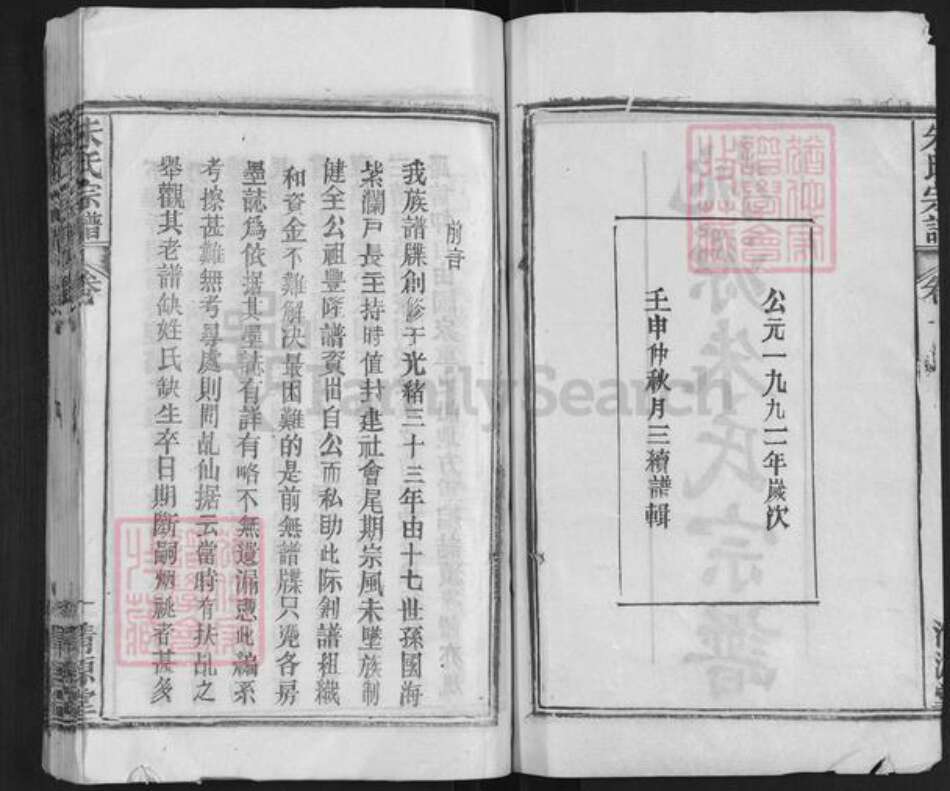 公元一九九二年嵗次
壬申仲秋月三續譜輯
朱氏宗譜
前言
我族譜牒創修于光緒三十三年由十七世孫國海
紫瀾戸長主持時值封建社會尾期宗風未墜族制
健全公祖豐厚譜資出自公而私助此际創譜組織
和資金不難解决最困難的是前無譜牒只凴各房
墨誌爲依据其墨誌有詳有略不無遺漏 此編系
考據甚難無考尋處則問乩仙据云當時有扶乩之
舉觀其老譜缺姓氏缺生卒日期斷嗣 祧者甚多
朱氏宗譜
卷
清源堂
FamilySearch